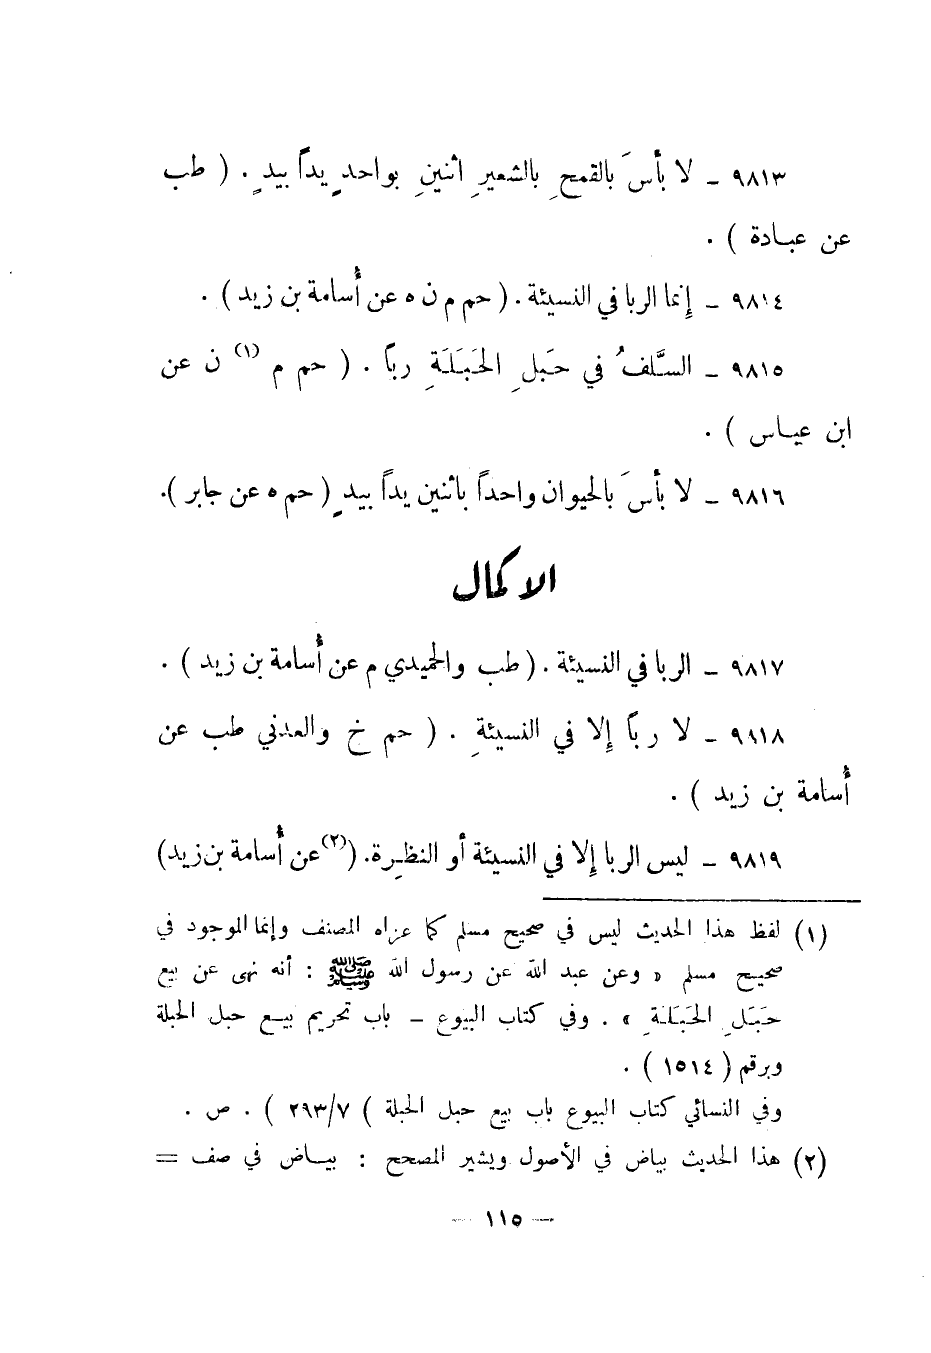 ٩٨١٣ ـ لا بأسَ بالقمحِ بالشعيرِ اثنينِ بواحدٍ يداً بيدٍ . ( طب
عن عبادة ) .
٩٨١٤ ـ إنما الربا في النسيئة . ( حم م ن ه عن أُسامة بن زيد ) .
٩٨١٥ ـ السَّلفُ في حَبَلِ الحَبَلَةِ رباً . ( حم م (١) ن عن
ابن عباس ) .
٩٨١٦ ـ لا بأسَ بالحيوان واحداً باثنين يداً بيدٍ ( حم ه عن جابر ).
الاكمال
٩٨١٧ ـ الربا في النسيئة . ( طب والحميدي م عن أُسامة بن زيد ) .
٩٨١٨ ـ لا رباً إلا في النسيئةِ . ( حم خ والعدني طب عن
أُسامة بن زيد ) .
٩٨١٩ ـ ليس الربا إلا في النسيئة أو النظرة. ((٢) عن أُسامة بن زيد)
(١) لفظ هذا الحديث ليس في صحيح مسلم كما عزاه المصنف وإنما الموجود في
صحيح مسلم « وعن عبد الله عن رسول الله ﷺ : أنه نهى عن بيع
حَبَلِ الحَبَلةِ » . وفي كتاب البيوع ـ باب تحريم بيع حبل الحبلة
وبرقم ( ١٥١٤ ) .
وفي النسائي كتاب البيوع باب بيع حبل الحبلة ) ٢٩٣/٧ ) . ص .
(٢) هذا الحديث بياض في الأصول ويشير المصحح : بياض في صف =
ـ ١١٥ ـ